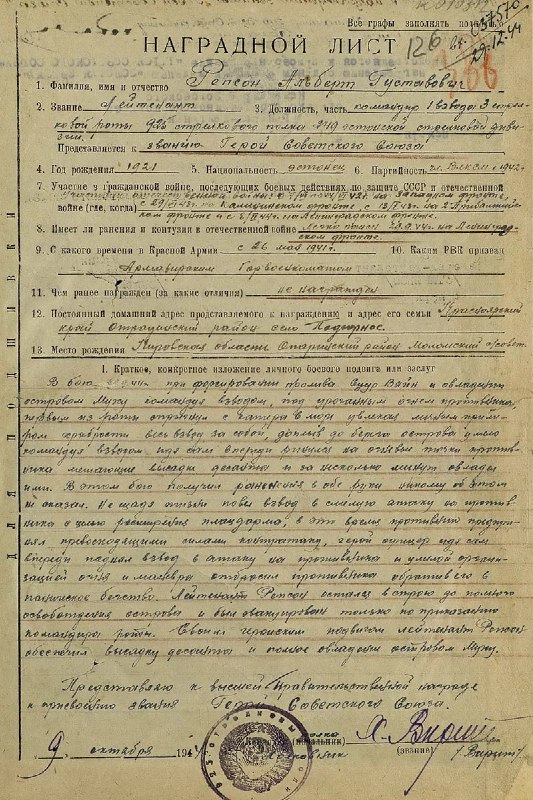 Все графы заполнять полностью
126
037570
29.12.44
366
НАГРАДНОЙ ЛИСТ
1. Фамилия, имя и отчество Репсон Альберт Густавович
2. Звание Лейтенант 3. Должность, часть командир 1 взвода 3 стрел-
ковой роты 925 стрелкового полка 249 эстонской стрелковой диви-
зии.
Представляется к званию Герой Советского Союза
4. Год рождения 1921 5. Национальность эстонец 6. Партийность чл. ВЛКСМ с 1942 г.
7. Участие в гражданской войне, последующих боевых действиях по защите СССР и отечественной
войне (где, когда)
8. Имеет ли ранения и контузии в отечественной войне легко ранен 29.9.44 г. на Ленинград-
ском фронте.
9. С какого времени в Красной Армии с 26 мая 1941 г. 10. Каким РВК призван
Армавирским Горвоенкоматом
11. Чем ранее награжден (за какие отличия) не награжден
12. Постоянный домашний адрес представляемого к награждению и адрес его семьи Красноярский
край район село Подгорное.
13. Место рождения Кировская область Опаринский район Моломский с/совет.
I. Краткое, конкретное изложение личного боевого подвига или заслуг
В бою при форсировании пролива Суур Вяйн и овладении
островом Муху командуя взводом, под ураганным огнем противника,
первым из роты спрыгнул с катера в море увлекая личным приме-
ром храбрости весь взвод за собой, доплыв до берега острова умело
командуя взводом идя сам впереди ринулся на огневые точки против-
ника мешающие высадки десанта и за несколько минут овладел
ими. В этом бою получил ранения в обе руки никому об этом
не сказал. Не щадя жизни повел взвод в смелую атаку на против-
ника с целью расширения плацдарма, в это время противник предпри-
нял превосходящими силами контратаку, герой офицер идя сам
впереди поднял взвод в атаку на противника и умелой органи-
зацией огня и маневра отбросил противника обратив его в
паническое бегство. Лейтенант Репсон остался в строю до полного
освобождения острова и был эвакуирован только по приказанию
командира роты. Своим геройским подвигом лейтенант Репсон
обеспечил высадку десанта и полное овладение островом Муху.
Представляю к высшей Правительственной награде
к присвоению звания Герой Советского Союза.
полка
(начальник)
9 октября 1944
(звание)
ДЛЯ ПОДШИВКИ